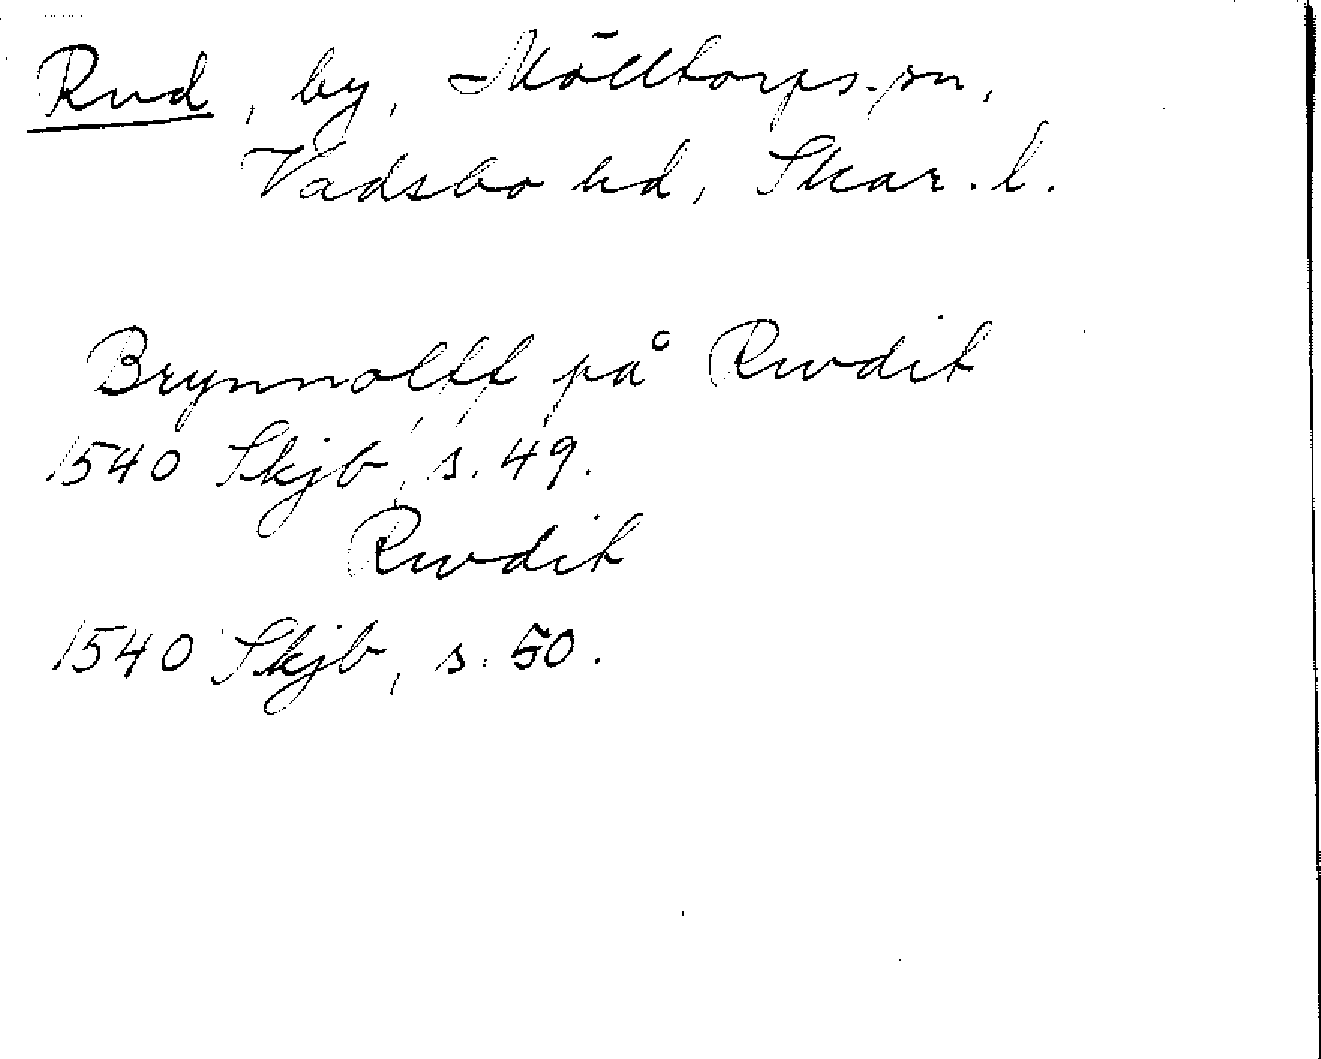 Rud, by, Mölltorps sn,
Vadsbo hd, Skar. l.
Brynnolff på Rwdit
1540 Skjb, s. 49.
Rwdit
1540 Skjb, s. 50.